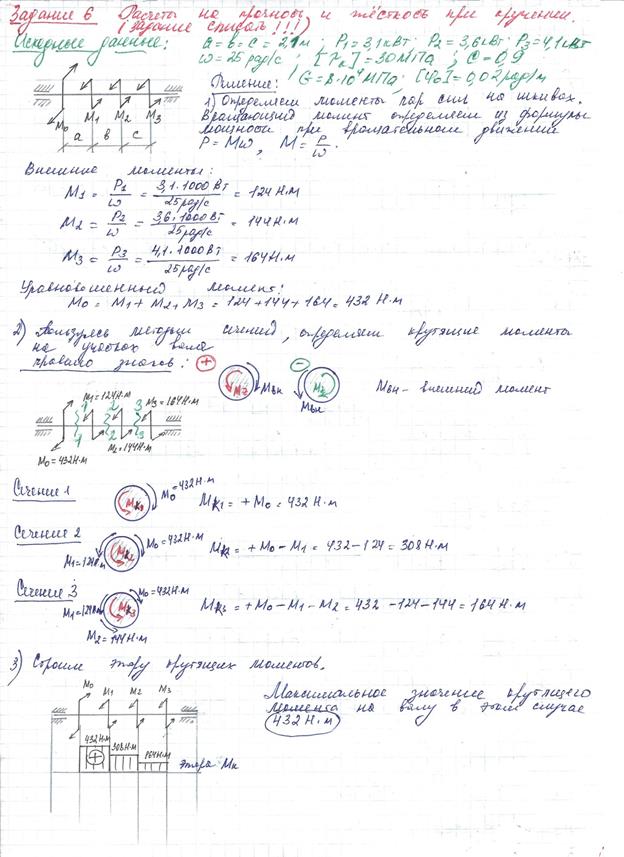 Задание 6 Расчеты на прочность и жёсткость при кручении.
(Задание списать!!!)
Исходные данные: a = в = с = 2,1 м; P1 = 3,1 кВт P2 = 3,6 кВт P3 = 4,1 кВт
ω = 25 рад/с; [τк] = 30 МПа; C = 0,9
G = 8·10⁴ МПа; [φ₀] = 0,02 рад/м
M0 M1 M2 M3
a в с
Решение:
1) Определяем моменты пар сил на шкивах.
Вращающий момент определяем из формулы
мощности при вращательном движении
P = Mω, M = P/ω.
Внешние моменты:
M1 = P1/ω = 3,1·1000 Вт/25 рад/с = 124 Н·м
M2 = P2/ω = 3,6·1000 Вт/25 рад/с = 144 Н·м
M3 = P3/ω = 4,1·1000 Вт/25 рад/с = 164 Н·м
Уравновешенный момент:
M0 = M1 + M2 + M3 = 124 + 144 + 164 = 432 Н·м
2) Пользуясь методом сечений, определяем крутящие моменты
на участках вала
правило знаков: + Mz Mвн − Mz Mвн Mвн – внешний момент
M1 = 124 Н·м M3 = 164 Н·м
1 2 3
1 2 3
M0 = 432 Н·м M2 = 144 Н·м
Сечение 1 Mк1 M0 = 432 Н·м Mк1 = + M0 = 432 Н·м
Сечение 2 M1 = 124 Н·м Mк2 M0 = 432 Н·м Mк2 = + M0 − M1 = 432 − 124 = 308 Н·м
Сечение 3 M1 = 124 Н·м Mк3 M0 = 432 Н·м Mк3 = + M0 − M1 − M2 = 432 − 124 − 144 = 164 Н·м
M2 = 144 Н·м
3) Строим эпюру крутящих моментов.
M0 M1 M2 M3
432 Н·м 308 Н·м 164 Н·м
+
эпюра Mк
Максимальное значение крутящего
момента на валу в этом случае
432 Н·м